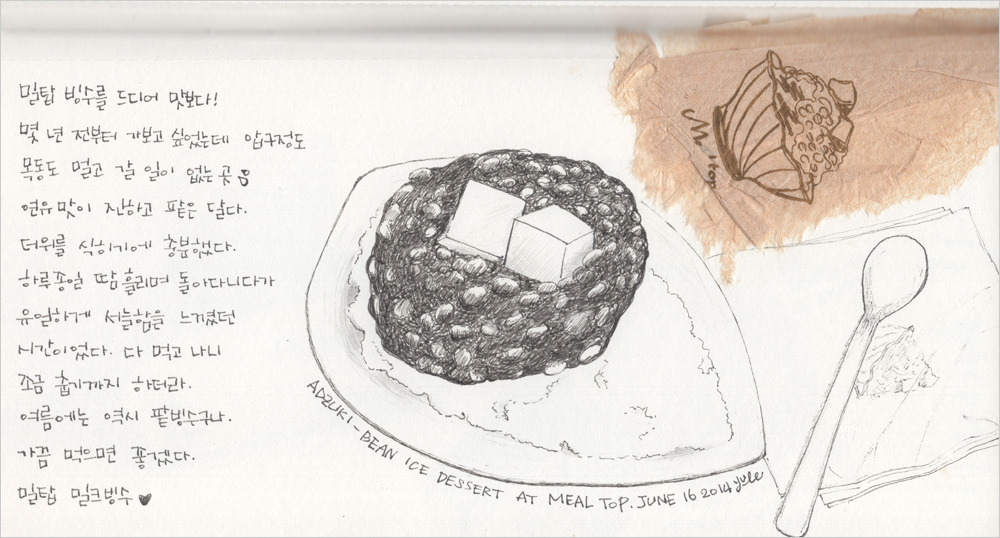 밀탑 빙수를 드디어 맛보다!
몇 년 전부터 가보고 싶었는데 압구정도
목동도 멀고 갈 일이 없는 곳
연유맛이 진하고 팥은 달다.
더위를 식히기에 충분했다.
하루종일 땀흘리며 돌아다니다가
유일하게 서늘함을 느꼈던
시간이었다. 다 먹고 나니
조금 춥기까지 하더라.
여름에는 역시 팥빙수구나.
가끔 먹으면 좋겠다.
밀탑 밀크빙수 ♥
ADZUKI-BEAN ICE DESSERT AT MEAL TOP. JUNE 16 2014 yule